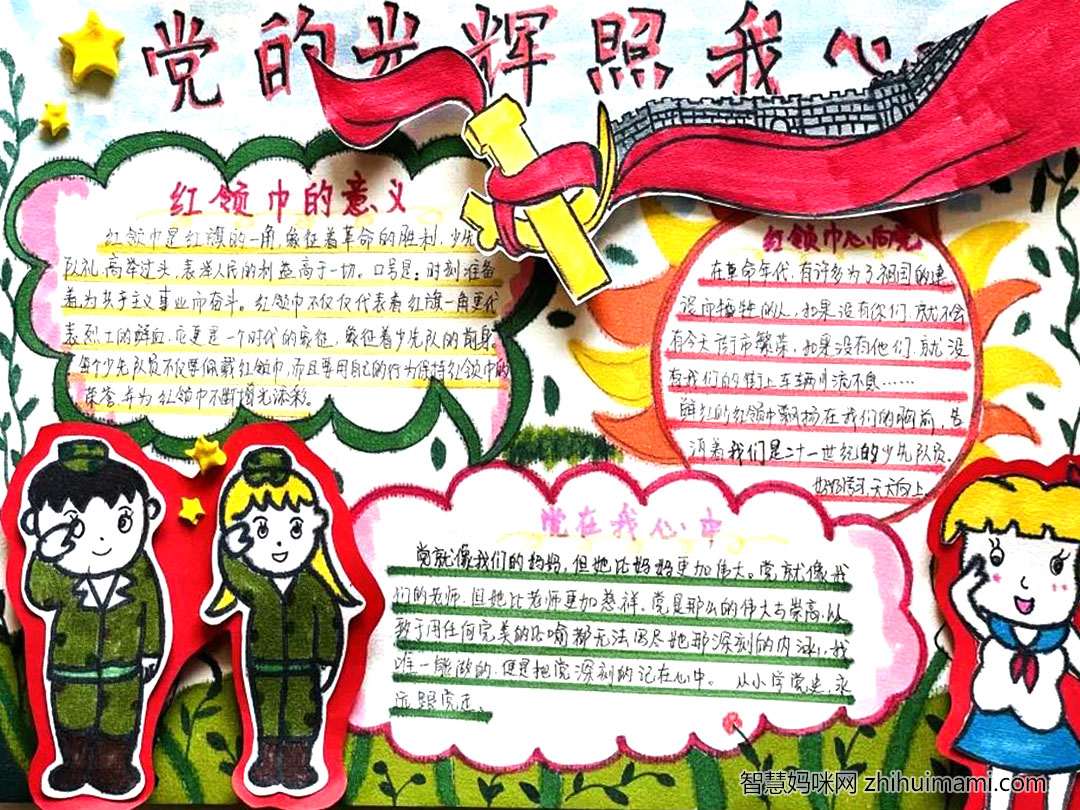 党的光辉照我心
红领巾的意义
红领巾是红旗的一角,象征着革命的胜利,少先
队礼,高举过头,表洋人民的利益高于一切。口号是:时刻准备
着,为共产主义事业而奋斗。红领巾不仅仅代表着红旗一角更代
表烈士的鲜血,它更是一个时代的象征,象征着少先队的前身。
每个少先队员不仅要佩戴红领巾,而且要用自己的行为保持红领巾的
荣誉,并为红领巾不断增光添彩。
红领巾心向党
在革命年代,有许多为了祖国的建
设而牺牲的人,如果没有你们,就不会
有今天街市繁荣,如果没有他们,就没
有我们的街上车辆川流不息……
鲜红的红领巾飘扬在我们的胸前,告
我们是二十一世纪的少先队员.
好好学习,天天向上
党在我心中
党就像我们的妈妈,但她比妈妈更加伟大。党就像我
们的老师,但她比老师更加慈祥,党是那么的伟大与崇高,以
致于用任何完美的比喻都无法尽她那深刻的内涵,我
唯一能做的,便是把党深刻的记在心中。从小学党史,永
远跟党走.
智慧妈咪网 zhihuimami.com